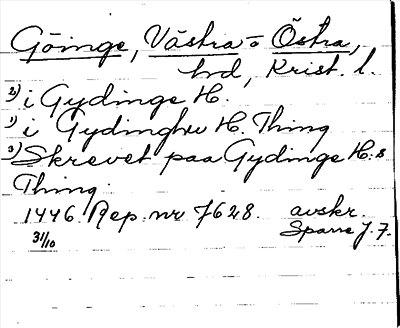 Göinge, Västra o Östra,
hrd, Krist. l.
2) i Gydinge H.
1) i Gydinghe H. Thing
3) Skrevet paa Gydinge H:s
Thing.
1446 Rep. nr 7628. avskr.
31/10 Sparre J. 7.